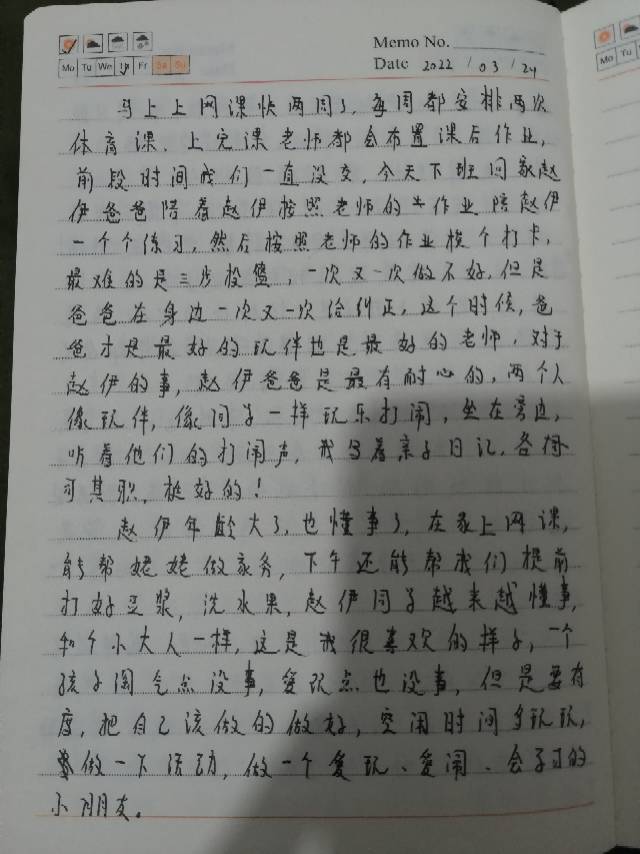 Memo No.
Mo Tu We Th Fr Sa Su
Date 2022 / 03 / 24
马上上网课快两周了，每周都安排两次
体育课，上完课老师都会布置课后作业，
前段时间我们一直没交，今天下班回家赵
伊爸爸陪着赵伊按照老师的作业陪赵伊
一个个练习，然后按照老师的作业挨个打卡，
最难的是三步投篮，一次又一次做不好，但是
爸爸在身边一次又一次给纠正，这个时候，爸
爸才是最好的玩伴也是最好的老师，对于
赵伊的事，赵伊爸爸是最有耐心的，两个人
像玩伴，像同学一样玩乐打闹，坐在旁边，
听着他们的打闹声，我写着亲子日记，各
司其职，挺好的！
赵伊年龄大了，也懂事了，在家上网课，
能帮姥姥做家务，下午还能帮我们提前
打好豆浆，洗水果，赵伊同学越来越懂事，
和个小大人一样，这是我很喜欢的样子，一个
孩子淘气点没事，爱玩点也没事，但是要有
度，把自己该做的做好，空闲时间多玩玩，
做一下活动，做一个爱玩、爱闹、会学习的
小朋友。